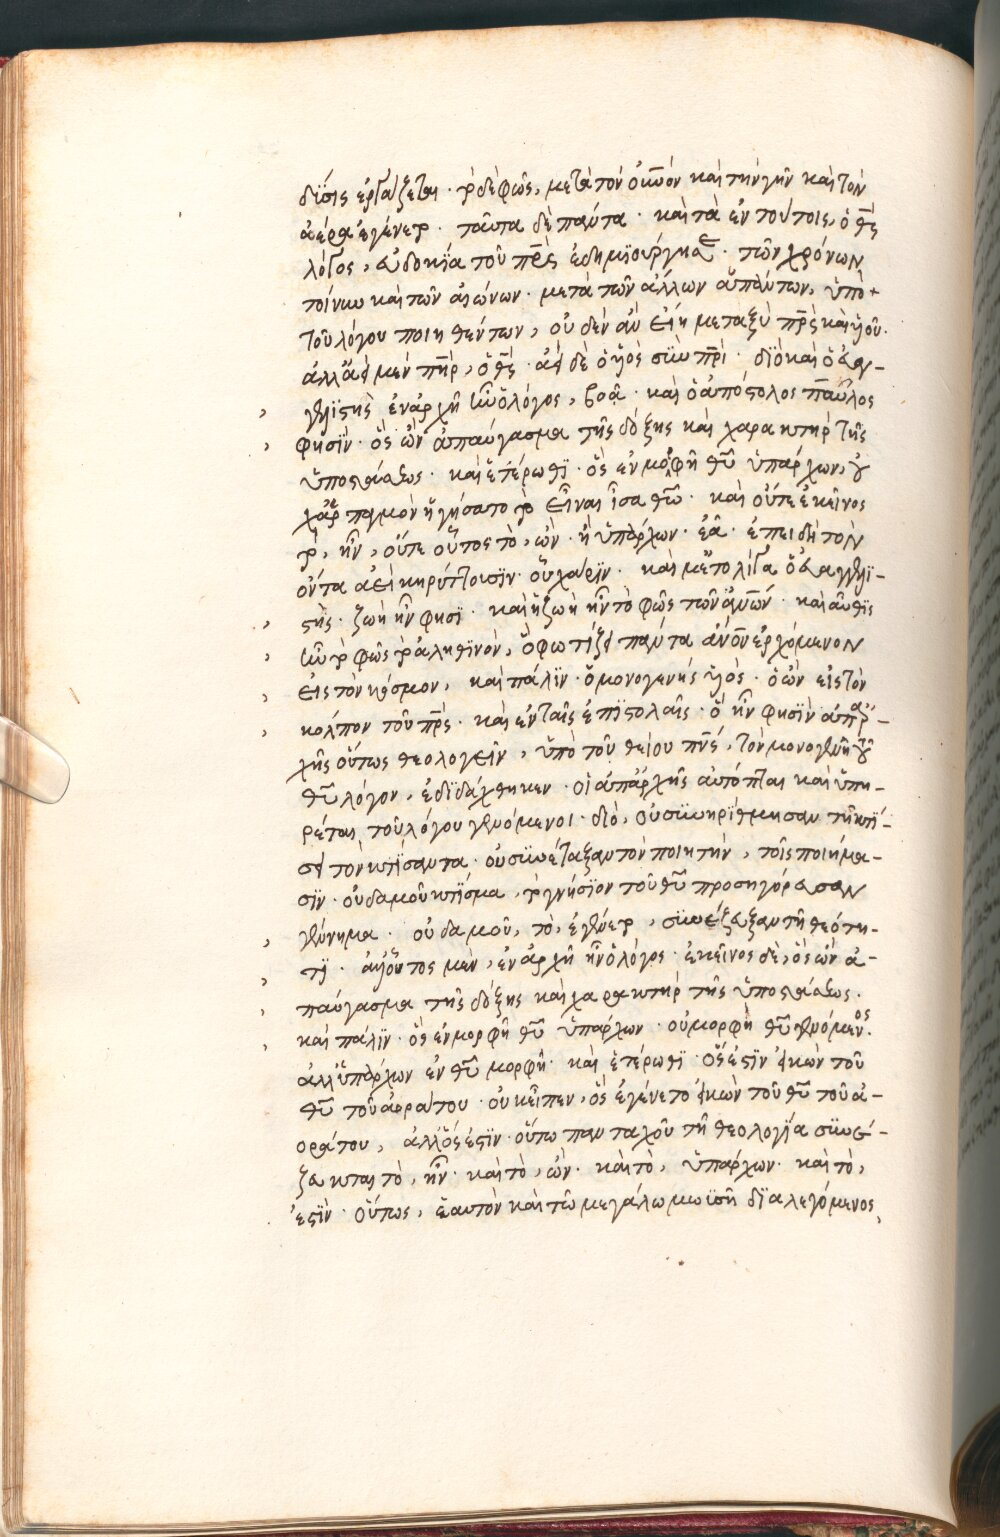 δΐσις ἐργάζεται · τὸ δὲ φῶς, μετὰ τὸν οὐνὸν καὶ τὴν γῆν καὶ τὸν
ἀέρα ἐγένετο · ταῦτα δὲ πάντα · καὶ τὰ ἐν τούτοις, ὁ θς
λόγος, εὐδοκία τοῦ πρς ἐδημϊούργησε · τῶν χρόνων
τοίνυν καὶ τῶν αἰώνων · μετὰ τῶν ἄλλων ἁπάντων, ὑπὸ
τοῦ λόγου ποιηθέντων, οὐδὲν ἂν εἴη μεταξὺ πρς καὶ ὑοῦ ·
ἀλλ' ἀεὶ μὲν πηρ, ὁ θς · ἀεὶ δὲ ὁ ὑὸς σὺν πρι · δϊὸ καὶ ὁ εὐαγ-
γελϊστὴς ἐν ἀρχῆ ἦν ὁ λόγος, βοᾶ · καὶ ὁ ἀπόστολος παῦλος
φησὶν · ὃς ὢν ἀπαύγασμα τῆς δόξης καὶ χαρακτὴρ τῆς
ὑποστάσεως · καὶ ἑτέρωθϊ · ὃς ἐν μορφῆ θυ ὑπάρχων, οὐ
χ' ἁρπαγμὸν ἡγήσατο τὸ εἶναι ἶσα θω · καὶ οὔτε ἐκεῖνος
τὸ, ἦν, οὔτε οὗτος τὸ, ὢν · ἢ ὑπάρχων · ἐᾶ · ἐπειδὴ τὸν
ὄντα ἀεὶ κηρύττουσϊν · οὗ χάρϊν · καὶ μετ' ὀλίγα ὁ εὐαγγελϊ-
στὴς · ζωὴ ἦν φησὶ · καὶ ἡ ζωὴ ἦν τὸ φῶς τῶν ἀνων · καὶ αὖθϊς
ἦν τὸ φῶς τὸ ἀληθϊνὸν, ὃ φωτίζει πάντα ἄνον ἐρχόμενον
εἰς τὸν κόσμον, καὶ πάλϊν · ὁ μονογενὴς ὑὸς · ὁ ὢν εἰς τὸν
κόλπον τοῦ πρς · καὶ ἐν ταῖς ἐπϊστολαῖς · ὃ ἦν φησὶν ἀπ' ἀρ-
χῆς οὕτως θεολογεῖν, ὑπὸ τοῦ θείου πνς, τὸν μονογενῆ τοῦ
θυ λόγον, ἐδϊδάχθησαν · οἱ ἀπ' ἀρχῆς αὐτόπται καὶ ὑπη-
ρέται τοῦ λόγου γενόμενοι · διὸ, οὐ συνηρίθμησαν τῆ κτί-
σει τὸν κτίσαντα · οὐ συνέταξαν τὸν ποιητὴν, τοῖς ποιήμα-
σϊν · οὐδαμοῦ κτίσμα, τὸ γνήσϊον τοῦ θυ προσηγόρευσαν
γέννημα · οὐδαμοῦ, τὸ, ἐγένετο, συνέζευξαν τῆ θεότη-
τϊ · ἀϊόντος μὲν, ἐν ἀρχῆ ἦν ὁ λόγος · ἐκεῖνος δὲ, ὃς ὢν ἀ-
παύγασμα τῆς δόξης καὶ χαρακτὴρ τῆς ὑποστάσεως ·
καὶ πάλϊν · ὃς ἐν μορφῆ θυ ὑπάρχων · οὐ μορφὴ θυ γενόμενος ·
ἀλλ' ὑπάρχων ἐν θυ μορφῆ · καὶ ἑτέρωθϊ · ὅς ἐστϊν εἰκὼν τοῦ
θυ τοῦ ἀοράτου · οὐκ εἶπεν, ὃς ἐγένετο εἰκὼν τοῦ θυ τοῦ ἀ-
οράτου, ἀλλ' ὅς ἐστϊν · οὕτω πανταχοῦ τῆ θεολογία συνέ-
ζευκται τὸ, ἦν · καὶ τὸ, ὢν · καὶ τὸ, ὑπάρχων · καὶ τὸ,
ἐστὶν · οὕτως, ἑαυτὸν καὶ τῶ μεγάλω μωϊσῆ δϊαλεγόμενος,